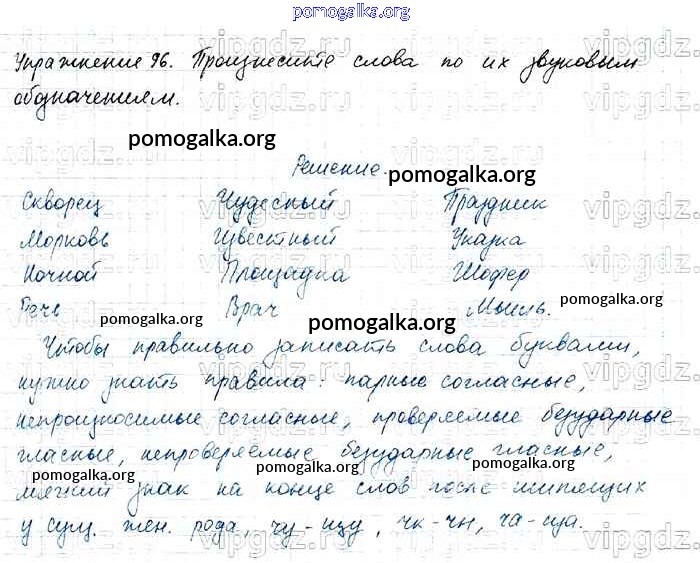 pomogalka.org
Упражнение 96. Произнесите слова по их звуковым
обозначениям.
pomogalka.org
Решение.
pomogalka.org
Скворец Чудесный Праздник
Морковь Известный Указка
Ночной Площадка Шофер
Речь Врач Мысль.
pomogalka.org
pomogalka.org
pomogalka.org
Чтобы правильно записать слова буквами,
нужно знать правила: парные согласные,
непроизносимые согласные, проверяемые безударные
гласные, непроверяемые безударные гласные,
pomogalka.org
pomogalka.org
pomogalka.org
мягкий знак на конце слов после шипящих
у сущ. жен. рода, чу-щу, чк-чн, ча-ща.
vipgdz.ru